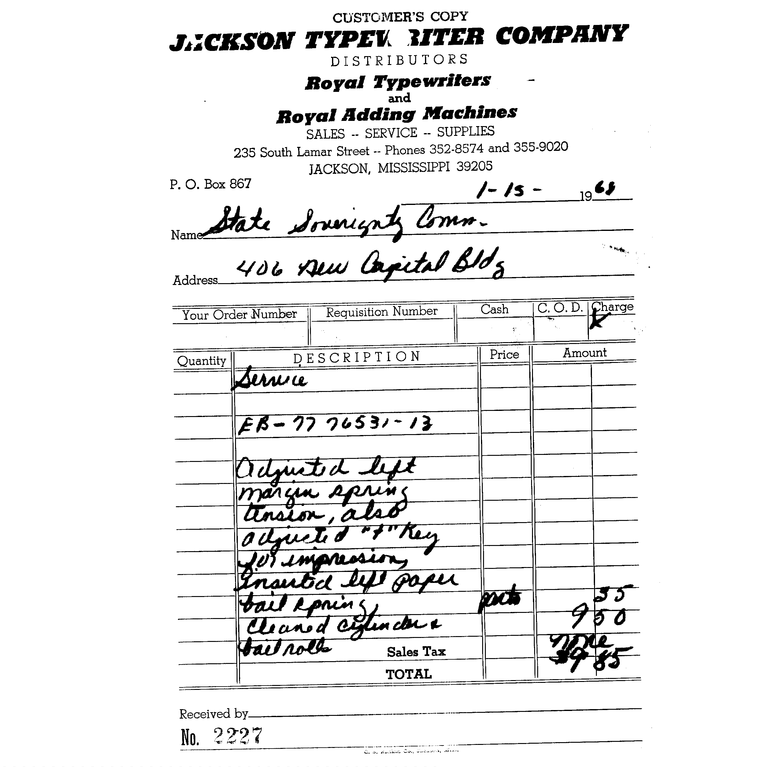 CUSTOMER'S COPY
JACKSON TYPEWRITER COMPANY
DISTRIBUTORS
Royal Typewriters
and
Royal Adding Machines
SALES -- SERVICE -- SUPPLIES
235 South Lamar Street -- Phones 352-8574 and 355-9020
JACKSON, MISSISSIPPI 39205
P. O. Box 867
1-15- 1968
Name State Soverignty Comm.
Address 406 New Capital Bldg
Your Order Number Requisition Number Cash C. O. D. Charge
Quantity DESCRIPTION Price Amount
Service
EB-77 76531-13
Adjusted left
margin spring
tension, also
adjusted "t" Key
for impression,
inserted left paper
bail spring, parts 35
Cleaned cylinder & 9 50
bail rolls Sales Tax none
TOTAL $9 85
Received by
No. 2227